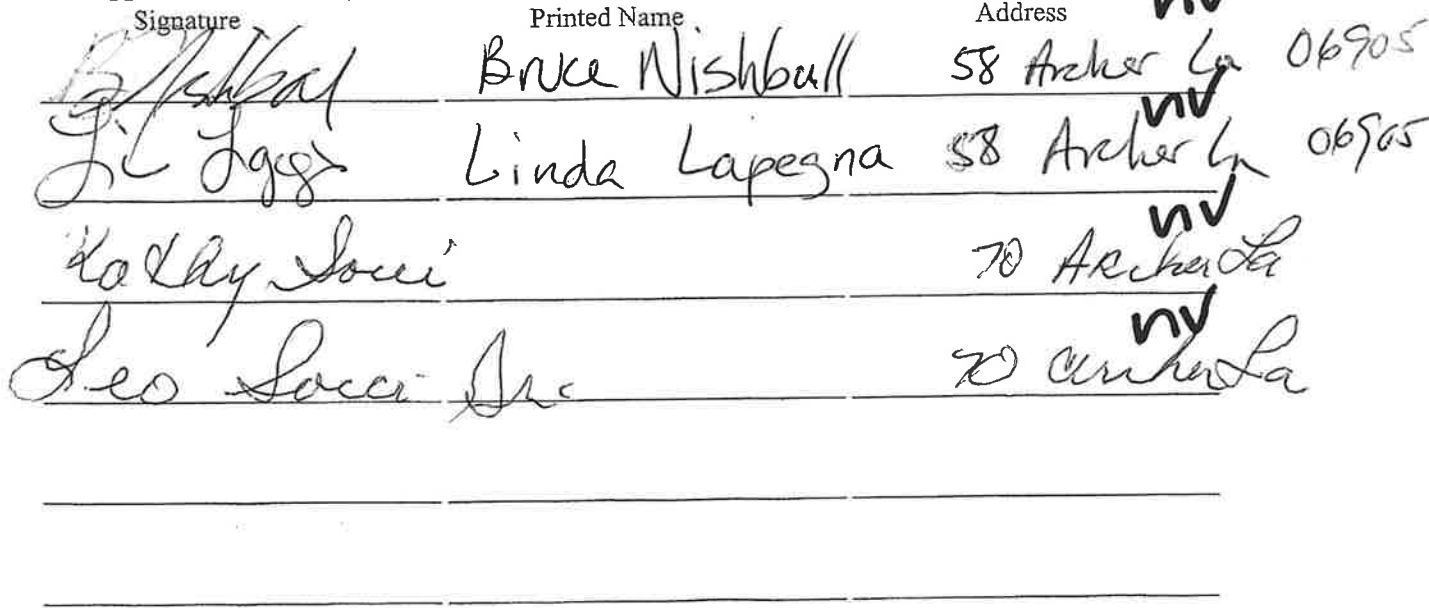 Signature Printed Name Address nv
B Nishball Bruce Nishball 58 Archer La 06905
nv
Linda Lapegna 58 Archer Ln 06905
nv
Kathy Socci 70 Archer La
nv
Leo Socci Sr. 70 Archer La